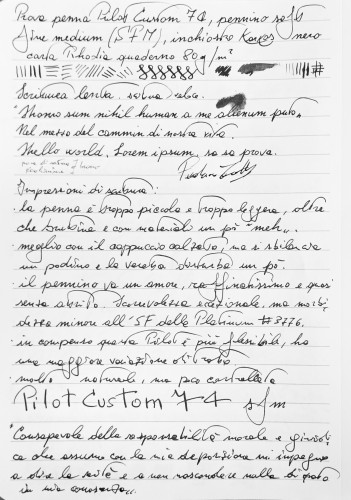 Prova penna Pilot Custom 74, pennino soft
fine medium (SFM), inchiostro nero
carta Rhodia quaderno 80 g/m²
Scrittura lenta.
"Homo sum nihil humani a me alienum puto"
Nel mezzo del cammin di nostra vita.
Hello world. Lorem ipsum, sa sa prova.
Impressioni di scrittura:
. la penna è troppo piccola e troppo leggera, oltre
che bruttina e con materiali un pò "meh".
. meglio con il cappuccio calzato, ma si sbilancia
un pochino e la disturba un pò.
. il pennino va un amore, raffinatissimo e quasi
senza attrito. Scorrevolezza eccezionale, ma morbi-
dezza minore all'SF della Platinum #3776.
. in compenso questa Pilot è più flessibile, ha
una maggiore variazione di tratto
molto naturale, ma poco controllata
Pilot Custom 74 sfm
"Consapevole della responsabilità morale e giuridi-
ca che assumo con la mia deposizione mi impegno
a dire la verità e a non nascondere nulla di quanto
in mia conoscenza".